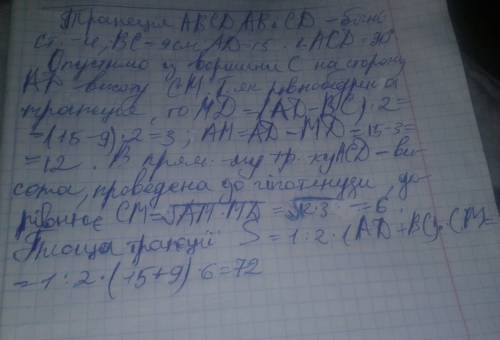 Трапеція ABCD AB і CD – бічні
ст-и, BC-9см, AD-15. ∠ACD=90°
Опустимо із вершини C на сторону
AD висоту CM. Т.як рівнобедрена
трапеція, то MD=(AD-BC):2=
=(15-9):2=3; AM=AD-MD=15-3=
=12. В прям-му тр-ку ACD-ви-
сота, проведена до гіпотенузи, до-
рівнює CM=√AM·MD=√12·3=6.
Площа трапеції S=1:2·(AD+BC)·CM=
=1:2·(15+9)·6=72